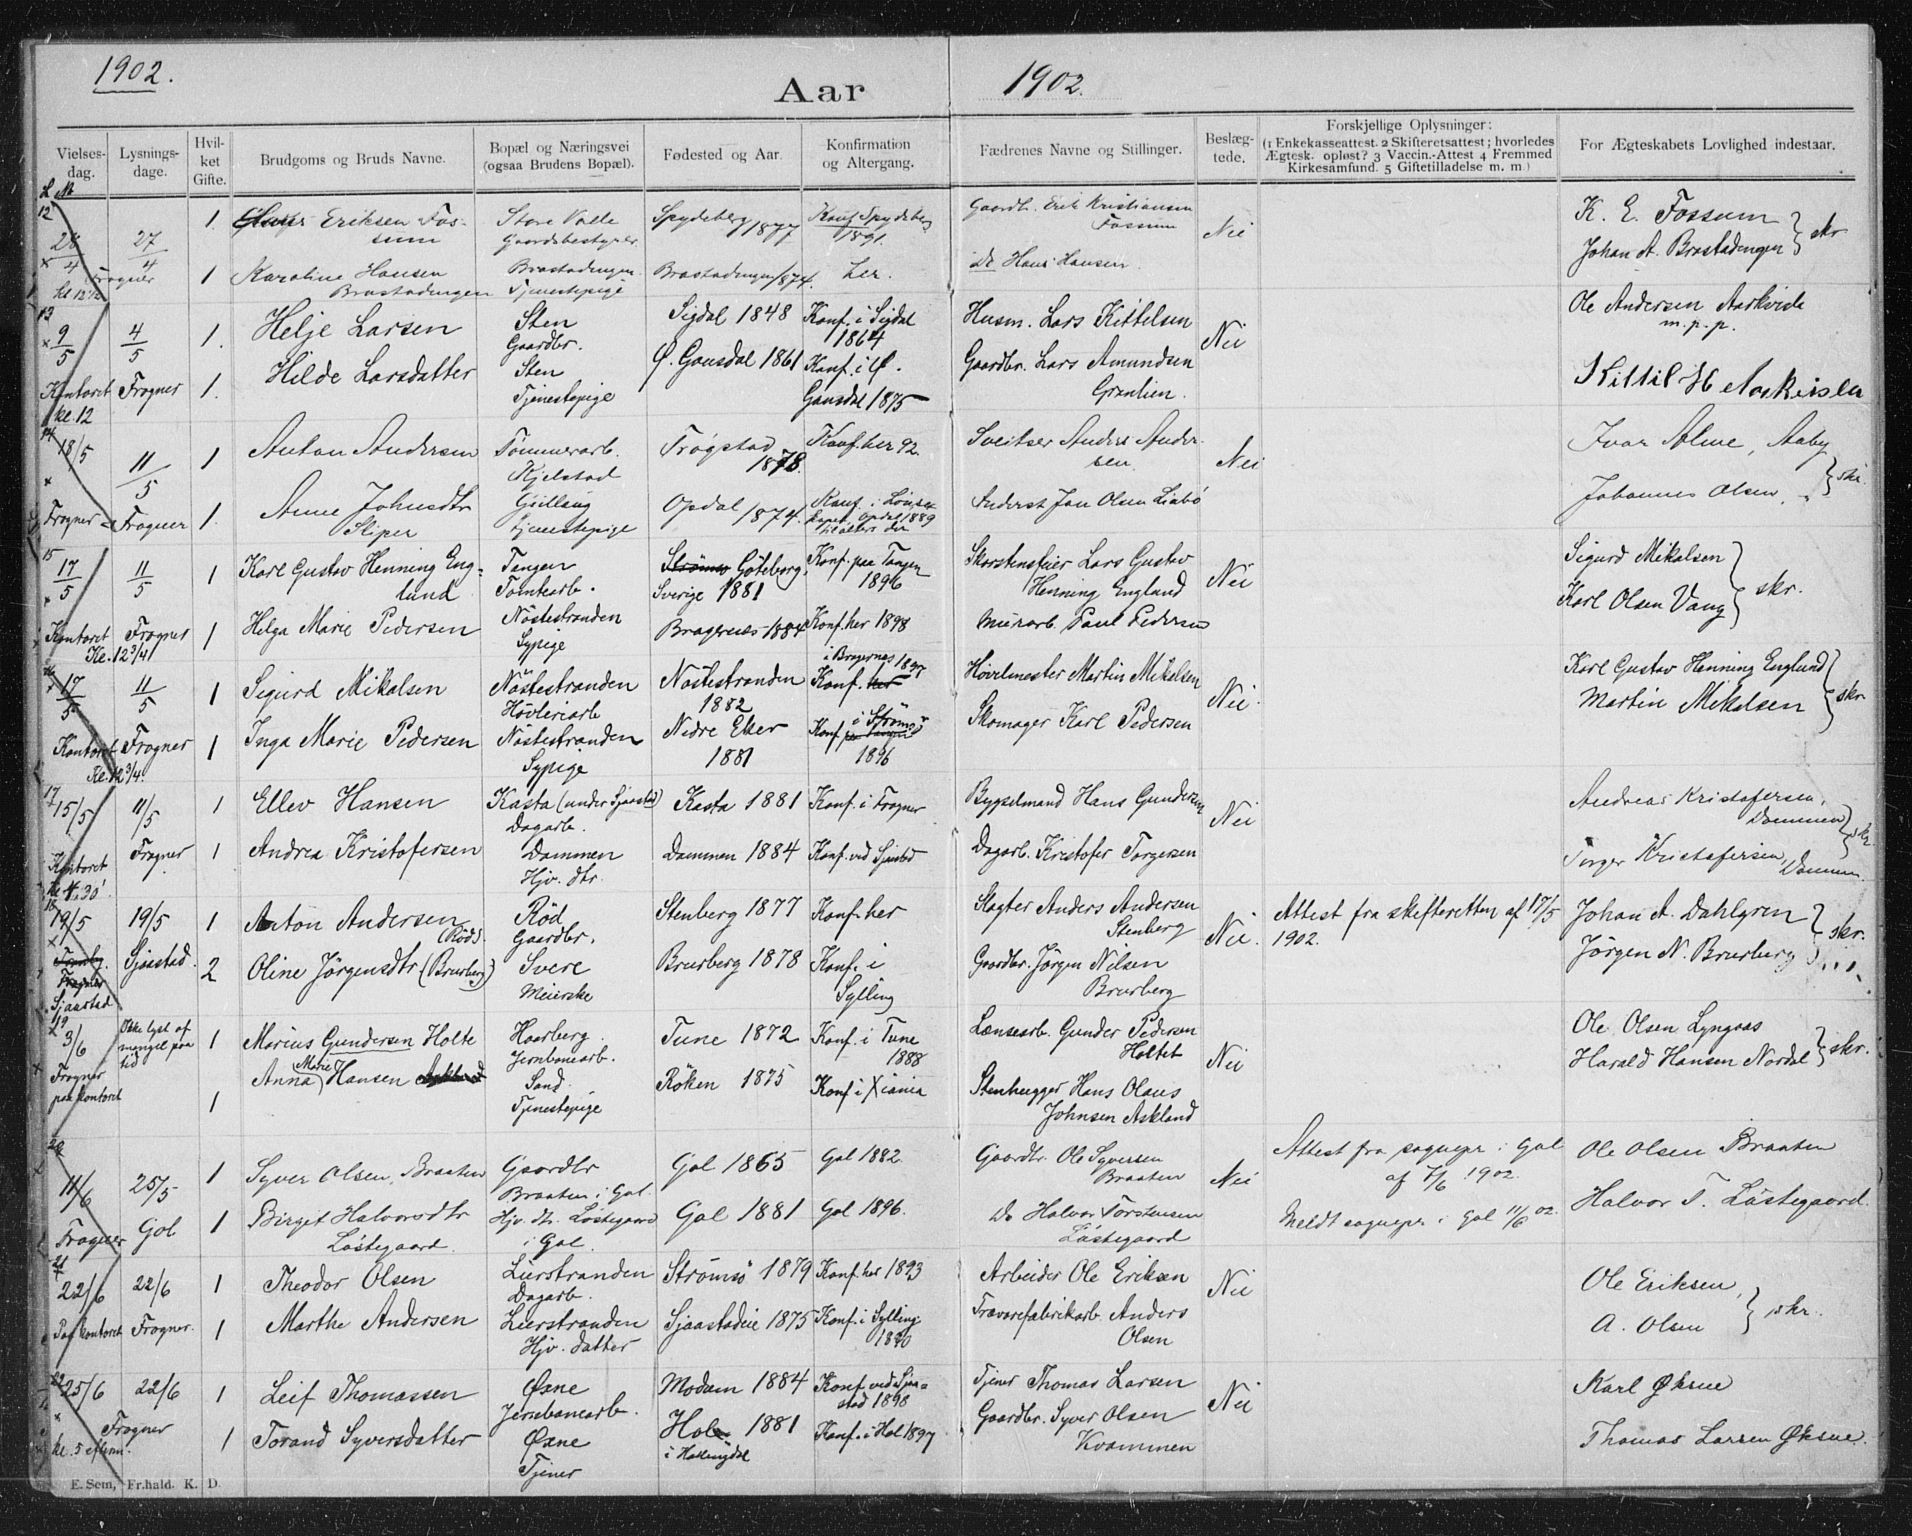 1902.
Aar
1902.
Vielses-
dag.
Lysnings-
dage.
Hvil-
ket
Gifte.
Brudgoms og Bruds Navne.
Bopæl og Næringsvei
(ogsaa Brudens Bopæl).
Fødested og Aar.
Konfirmation
og Altergang.
Fædrenes Navne og Stillinger.
Beslæg-
tede.
Forskjellige Oplysninger:
(1 Enkekasseattest. 2 Skifteretsattest; hvorledes
Ægtesk. opløst? 3 Vaccin.-Attest 4 Fremmed
Kirkesamfund. 5 Giftetilladelse m. m.)
For Ægteskabets Lovlighed indestaar.
12
28/4 27/4 1 Eriksen Fos-
sum
Store Valle
Gaardsbestyrer
Spydeberg 1877
Konf. Spydeberg
1891.
Gaardb. Erik Kristiansen
Fossum
Nei
K. E. Fossum
Johan A. Brastadengen } skr
Frogner
kl 12 1/2
1 Karoline Hansen
Brastadengen
Brastadengen
Tjenestepige
Brastadengen 1874.
Lier.
Do Hans Hansen
13
9/5 4/5 1. Helje Larsen
Sten
Gaardbr.
Sigdal 1848
Konf. i Sigdal
1864
Husm. Lars Kittelsen
Nei
Ole Andersen Aarkvisle
m.p.p.
Kontoret
kl. 12
Frogner 1. Hilde Larsdatter
Sten
Tjenestepige
Ø. Gausdal 1861
Konf. i Ø.
Gausdal 1875
Gaardbr. Lars Amundsen
Grønlien.
Kittil H
14
18/5 11/5 1 Anton Andersen
Tømmerarb.
Kjelstad
Trøgstad
1878.
Konf. her 92.
Sveitser Anders Ander-
sen
Nei
Ivar Alme, Aaby
Johannes Olsen, " } skr
Frogner Frogner 1. Anne Johnsdtr
Sliper
Gullaug
tjenestepige
Opdal 1874.
Konf. i Lønset
kapel, Opdal 1889
Inderst Jon Olsen Liabø
15
17/5 11/5 1 Karl Gustav Henning Eng-
lund
Tangen
Tomtearb.
Strømsø Göteborg,
Sverige 1881
Konf. paa Tangen
1896
Skorstensfeier Lars Gustav
Henning Englund
Nei
Sigurd Mikalsen
Karl Olsen Vang } skr.
Kontoret
Kl. 12 3/4
Frogner 1 Helga Marie Pedersen
Nøstestranden
Sypige
Bragernes 1884
Konf. her 1898
Murarb. Paul Pedersen
16
17/5 11/5 1 Sigurd Mikalsen
Nøstestranden
Høvleriarb
Nøstestranden
1882
i Bragernes 1897
Konf. her
Høvelmester Martin Mikalsen
Nei.
Karl Gustav Henning Englund
Martin Mikalsen } skr
Kontoret
Kl. 12 3/4.
Frogner 1 Inga Marie Pedersen
Nøstestranden
Sypige
Nedre Eker
1881
i Strømsø
Konf. paa Tangen
1896
Skomager Karl Pedersen
17
15/5 11/5 1 Ellev Hansen
Kasta (under Sjaastad)
Dagarb.
Kasta 1881
Konf. i Frogner
Bygselmand Hans Gundersen
Nei
Andreas Kristofersen,
Dammen
Kontoret
kl 4.30'
Frogner 1 Andrea Kristofersen
Dammen
Hjv. dtr.
Dammen 1884
Konf. ved Sjaastad
Dagarb. Kristofer Torgersen
Torger Kristofersen, } skr
Dammen
18
19/5 19/5 1 Anton Andersen
(Rød).
Rød
Gaardbr.
Stenberg 1877
Konf. her
Slagter Anders Andersen
Stenberg
Nei.
Attest fra skifteretten af 17/5
1902.
Johan A. Dahlgren
Jørgen N. Brurberg } skr.
Frogner
Sjaastad
Sjaastad. 2 Oline Jørgensdtr (Brurberg)
Svere
Meierske
Brurberg 1878
Konf. i
Sylling
Gaardbr. Jørgen Nilsen
Brurberg
19
3/6
Ikke lyst af
mangel paa
tid
1 Marius Gundersen Holte
Haarberg
Jernbanearb.
Tune 1872
Konf. i Tune
1888
Lænsearb. Gunder Pedersen
Holtet
Nei
Ole Olsen Lyngaas
Harald Hansen Nordal } skr.
Frogner
paa kontoret
1
Anna Marie Hansen
Sand
Tjenestepige
Røken 1875
Konf i Xiania
Stenhugger Hans Olaus
Johnsen Askland
20
11/6 25/5 1 Syver Olsen Braaten
Gaardbr
Braaten i Gol.
Gol 1865
Gol 1882
Gaardbr. Ole Syversen
Braaten
Nei
Attest fra sognepr. i Gol
af 7/6 1902.
Ole Olsen Braaten
Frogner Gol 1 Birgit Halvorsdtr
Løstegaard
Hjv. dtr. Løstegaard
i Gol.
Gol 1881
Gol 1896.
Do Halvor Torstensen
Løstegaard
Meldt sognepr. i Gol 11/6 02.
Halvor T. Løstegaard
21
22/6 22/6 1 Theodor Olsen
Lierstranden
Dagarb.
Strømsø 1879
Konf. her 1893
Arbeider Ole Eriksen
Nei
Ole Eriksen,
A. Olsen } skr.
Paa kontoret Frogner. 1 Marthe Andersen
Lierstranden
Hjv. datter
Sjaastadeie 1875
Konf. i Sylling
1890
Trævarefabrikarb. Anders
Olsen
22
25/6 22/6 1 Leif Thomassen
Øxne
Jernbanearb.
Modum 1884
Konf. ved Sjaa-
stad 1898
Tjener Thomas Larsen
Nei
Karl Øksne
Frogner
kl. 5 efterm.
1 Torand Syversdatter
Øxne
Tjener
Hol 1881
i Hallingdal
Konf. i Hol 1897
Gaardbr. Syver Olsen
Kvammen
Thomas Larsen Øksne.
E. Sem, Fr.hald. K. D.